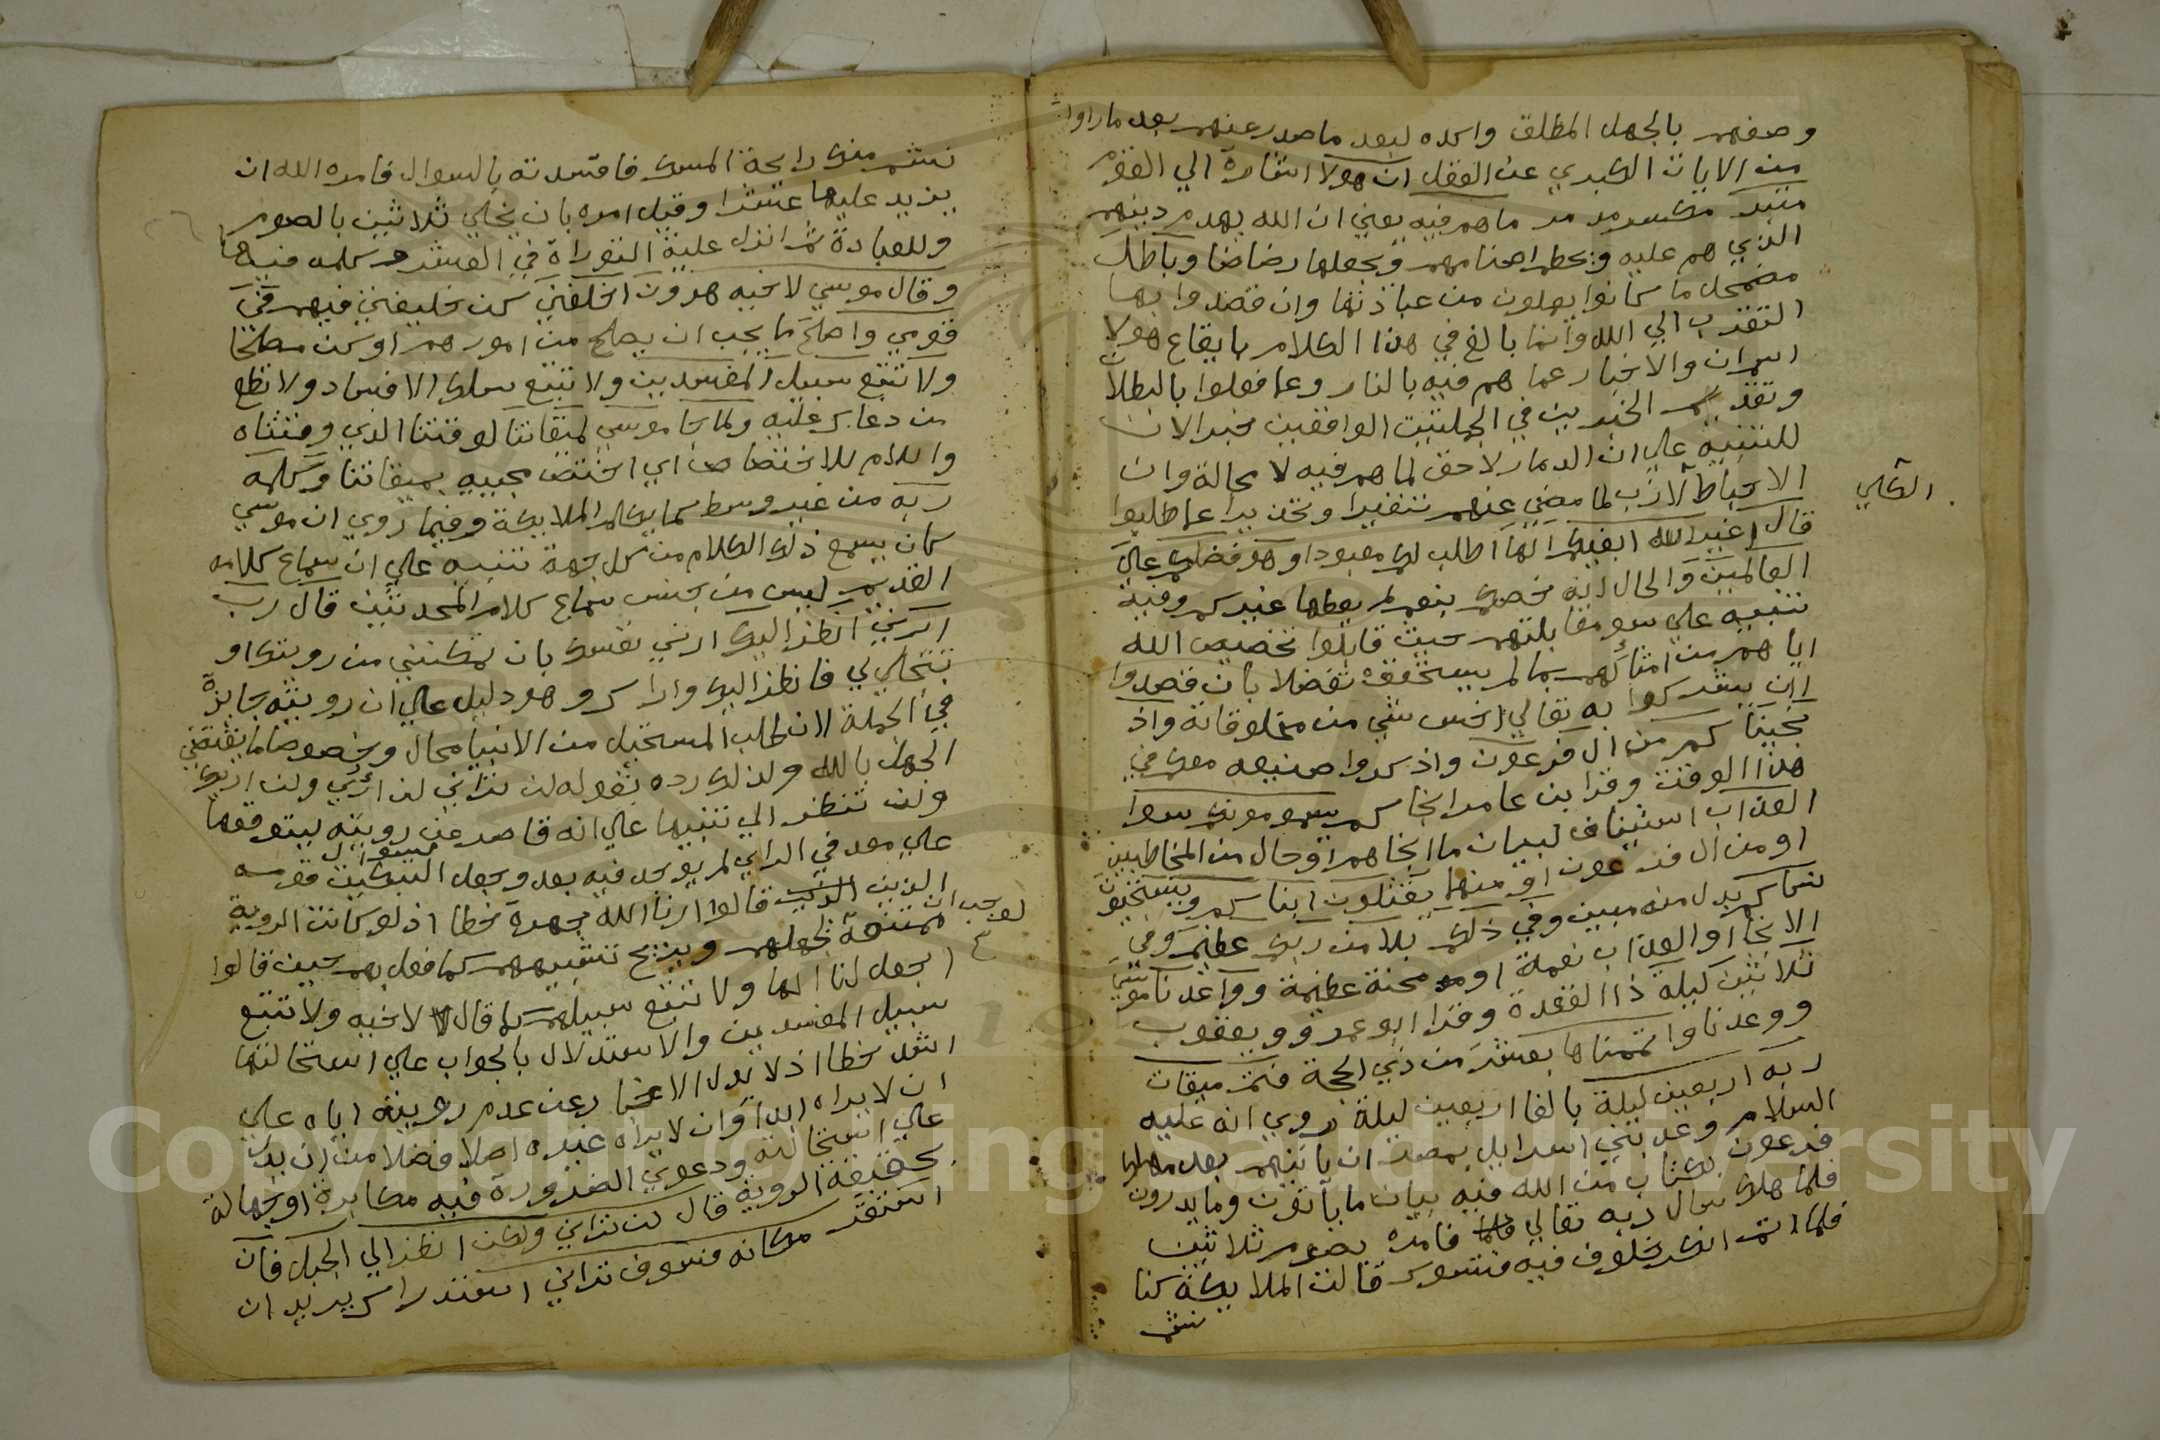 وصفهم بالجهل المطلق واكده لبعد ما صدر عنهم بعد ما راوا
من الايات الكبري عن العقل ان هولا اشارة الي القوم
متبر مكسر مدمر ما هم فيه يعني ان الله يهدم دينهم
الذي هم عليه ويحطم اصنامهم ويجعلها رضاضا وباطل
مضمحل ما كانوا يعملون من عبادتها وان قصدوا بها
التقرب الي الله وانما بالغ في هذا الكلام بايقاع هولا
اسم ان والاخبار عما هم فيه بالتبار وعما فعلوا بالبطلان
وتقديم الخبرين في الجملتين الواقعتين خبرا لان
للتنبيه علي ان الدمار لاحق لما هم فيه لا محالة وان
الاحباط لازب لما مضي عنهم تنفيرا وتحذيرا عما طلبوا
الكلي
قال اغير الله ابغيكم الها اطلب لكم معبودا وهو فضلكم علي
العالمين والحال انه خصكم بنعم لم يعطها غيركم وفيه
تنبيه علي سو مقابلتهم حيث قابلوا تخصيص الله
اياهم من امثالهم بما لم يستحقوه تفضلا بان قصدوا
ان يشركوا به تعالي اخس شي من مخلوقاته واذ
نجيناكم من ال فرعون واذكروا صنيعه معكم في
هذا الوقت وقرا بن عامر انجاكم يسومونكم سوا
العذاب استيناف لبيان ما انجاهم او حال من المخاطبين
او من ال فرعون او منهما يقتلون ابناكم ويستحيون
نساكم بدل منه مبين وفي ذلكم بلا من ربكم عظيم وفي
الانجا او العذاب نعمة او محنة عظيمة وواعدنا موسي
ثلاثين ليلة ذا القعدة وقرا ابو عمرو ويعقوب
ووعدنا واتممناها بعشر من ذي الحجة فتم ميقات
ربه اربعين ليلة بالغا اربعين ليلة روي انه عليه
السلام وعد بني اسرايل بمصر ان ياتيهم بعد مهلك
فرعون بكتاب من الله فيه بيان ما ياتون وما يدرون
فلما هلك سال ربه تعالي فامره بصوم ثلاثين
فلما اتم انكر خلوف فيه فتسوك قالت الملايكة كنا
نشم
نشم منك رايحة المسك فافسدته بالسواك فامره الله ان
يزيد عليها عشرا وقيل امره بان يخلي ثلاثين بالصوم
وللعبادة ثم انزل عليه التوراة في العشر وكلمه فيها
وقال موسي لاخيه هرون اخلفني كن خليفتي فيهم في
قومي واصلح ما يجب ان يصلح من امورهم او كن مصلحا
ولا تتبع سبيل المفسدين ولا تتبع سلك الافساد ولا تطع
من دعاك عليه ولما جا موسي لميقاتنا لوقتنا الذي وقتناه
واللام للاختصاص اي اختص مجييه بميقاتنا وكلمه
ربه من غير وسط كما يكلم الملايكة وفيما روي ان موسي
كان يسمع ذلك الكلام من كل جهة تنبيه علي ان سماع كلامه
القديم ليس من جنس سماع كلام المحدثين قال رب
ارني انظر اليك ارني نفسك بان تمكنني من رويتك او
تتجلي لي فانظر اليك واراك وهو دليل علي ان رويته جايزة
في الجملة لان طلب المستحيل من الانبيا محال وخصوصا ما يقتضي
الجهل بالله ولذلك رده بقوله لن تراني لن اري ولن اريك
ولن تنظر الي تنبيها علي انه قاصر عن رويته ليتوقفها
علي معد في الراي لم يوجد فيه بعد وجعل السوال لتبكيت قومه
الذين قالوا ارنا الله جهرة خطا اذ لو كانت الروية
لوجب ان
ممتنعة تجهلهم ويزيح تشبيههم كما فعل بهم حين قالوا
اجعل لنا الها ولا تتبع سبيلهم كما قال لاخيه ولا تتبع
سبيل المفسدين والاستدلال بالجواب علي استحالتها
اشد خطا اذ لا يدل الاخبار عن عدم رويته اياه علي
ان لا يراه ابدا وان لا يراه غيره اصلا فضلا من ان يدل
علي استحالته ودعوي الضرورة فيه مكابرة او جهالة
بحقيقة الروية قال لن تراني ولكن انظر الي الجبل فان
استقر مكانه فسوف تراني استدراك يريد ان
Copyright © King Saud University